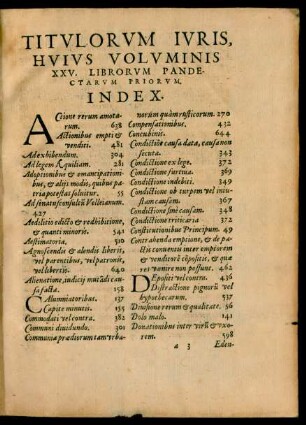 TITVLORVM IVRIS,
HVIVS VOLVMINIS
XXV. LIBRORVM PANDE-
CTARVM PRIORVM,
INDEX.
ACtione rerum amota-
rum. 638
Actionibus empti &
venditi. 481
Ad exhibendum. 304
Ad legem Aquiliam. 281
Adoptionibus & emancipationi-
bus, & alijs modis, quibus pa-
tria potestas soluitur. 55
Ad senatusconsultū Velleianum.
427
Aedilitio edicto & redhibitione,
& quanti minoris. 541
Aestimatoria. 510
Agnoscendis & alendis liberis,
vel parentibus, vel patronis,
vel libertis. 640
Alienatione, iudicij mutādi cau-
sa facta. 158
CAlumniatoribus. 137
Capite minutis. 155
Commodati vel contra. 382
Communi diuidundo. 301
Communia prædiorum tam vrba-
norum quàm rusticorum. 270
Compensationibus. 432
Concubinis. 644
Conditiōe causa data, causa non
secuta. 343
Conditione ex lege. 372
Conditione furtiua. 369
Conditione indebiti. 349
Conditione ob turpem vel iniu-
stam causam. 367
Conditione sine causa. 348
Conditione triticaria 372
Constitutionibus Principum. 49
Contrahenda emptione, & de pa-
ctis conuentis inter emptorem
& venditorē cōpositis, & quæ
res vænire non possunt. 462
DEpositi vel contra. 436
Distractione pignorū vel
hypothecarum. 537
Diuisione rerum & qualitate. 36
Dolo malo. 141
Donationibus inter virū & vxo-
rem. 598
a 3 Eden-